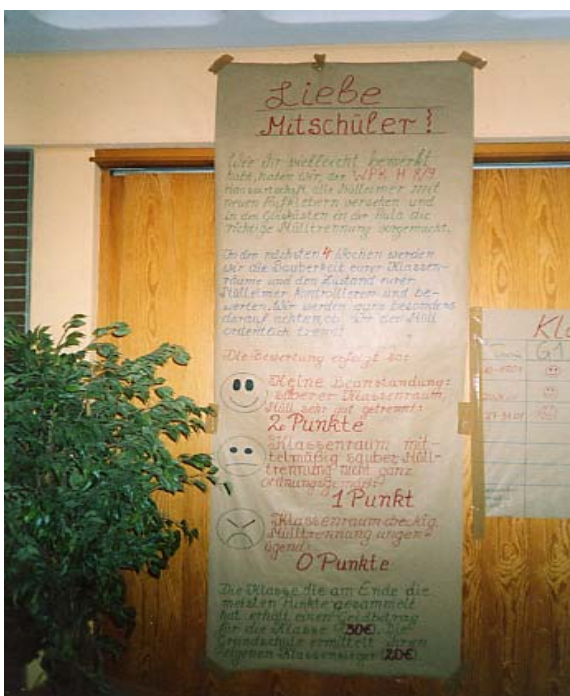 Liebe
Mitschüler!
Wie ihr vielleicht bemerkt
habt, haben wir, der WPK H 8/9
Hauswirtschaft, alle Mülleimer mit
neuen Aufklebern versehen und
in den Glaskästen in der Aula die
richtige Mülltrennung vorgemacht.
In den nächsten 4 Wochen werden
wir die Sauberkeit eurer Klassen-
räume und den Zustand eurer
Mülleimer kontrollieren und be-
werten. Wir werden ganz besonders
darauf achten, ob ihr den Müll
ordentlich trennt.
Die Bewertung erfolgt so:
Keine Beanstandung:
sauberer Klassenraum,
Müll sehr gut getrennt:
2 Punkte
Klassenraum mit-
telmäßig sauber, Müll-
trennung nicht ganz
ordnungsgemäß:
1 Punkt
Klassenraum dreckig,
Mülltrennung ungen-
ügend:
0 Punkte
Die Klasse die am Ende die
meisten Punkte gesammelt
hat, erhält einen Geldbetrag
für die Klasse (30€). Die
Grundschule ermittelt ihren
eigenen Klassensieger (20€).
Kla
G1